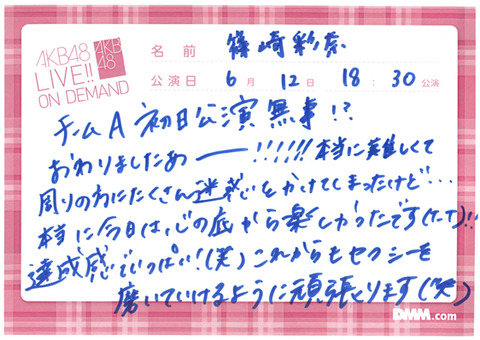 AKB48
LIVE!!
ON DEMAND
AKB
48
名前 篠崎彩奈
公演日 6月12日 18:30公演
チームA 初日公演 無事!?
おわりましたあー!!!!!! 本当に難しくて
周りの方にたくさん迷惑をかけてしまったけど…
本当に今日は、心の底から楽しかったです(T-T)!!
達成感でいっぱい!(笑) これからもセクシーを
磨いていけるように頑張とります(笑)
DMM.com